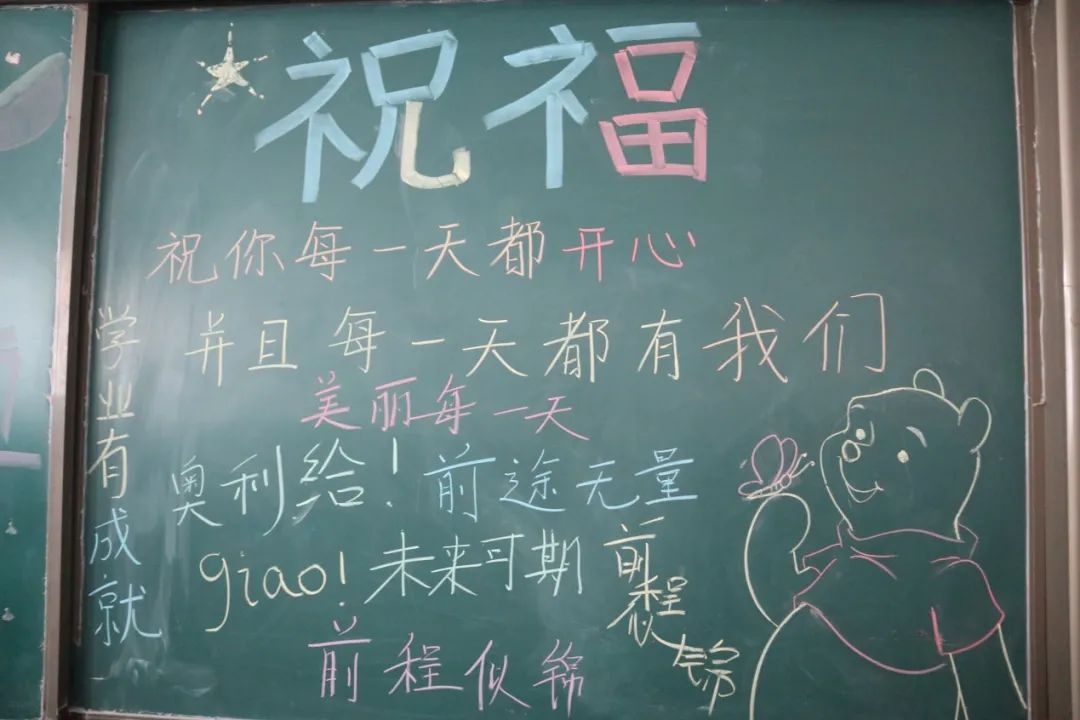 祝福
祝你每一天都开心
并且每一天都有我们
美丽每一天
学业有成就
奥利给！前途无量
giao！未来可期
前程似锦
前程似锦